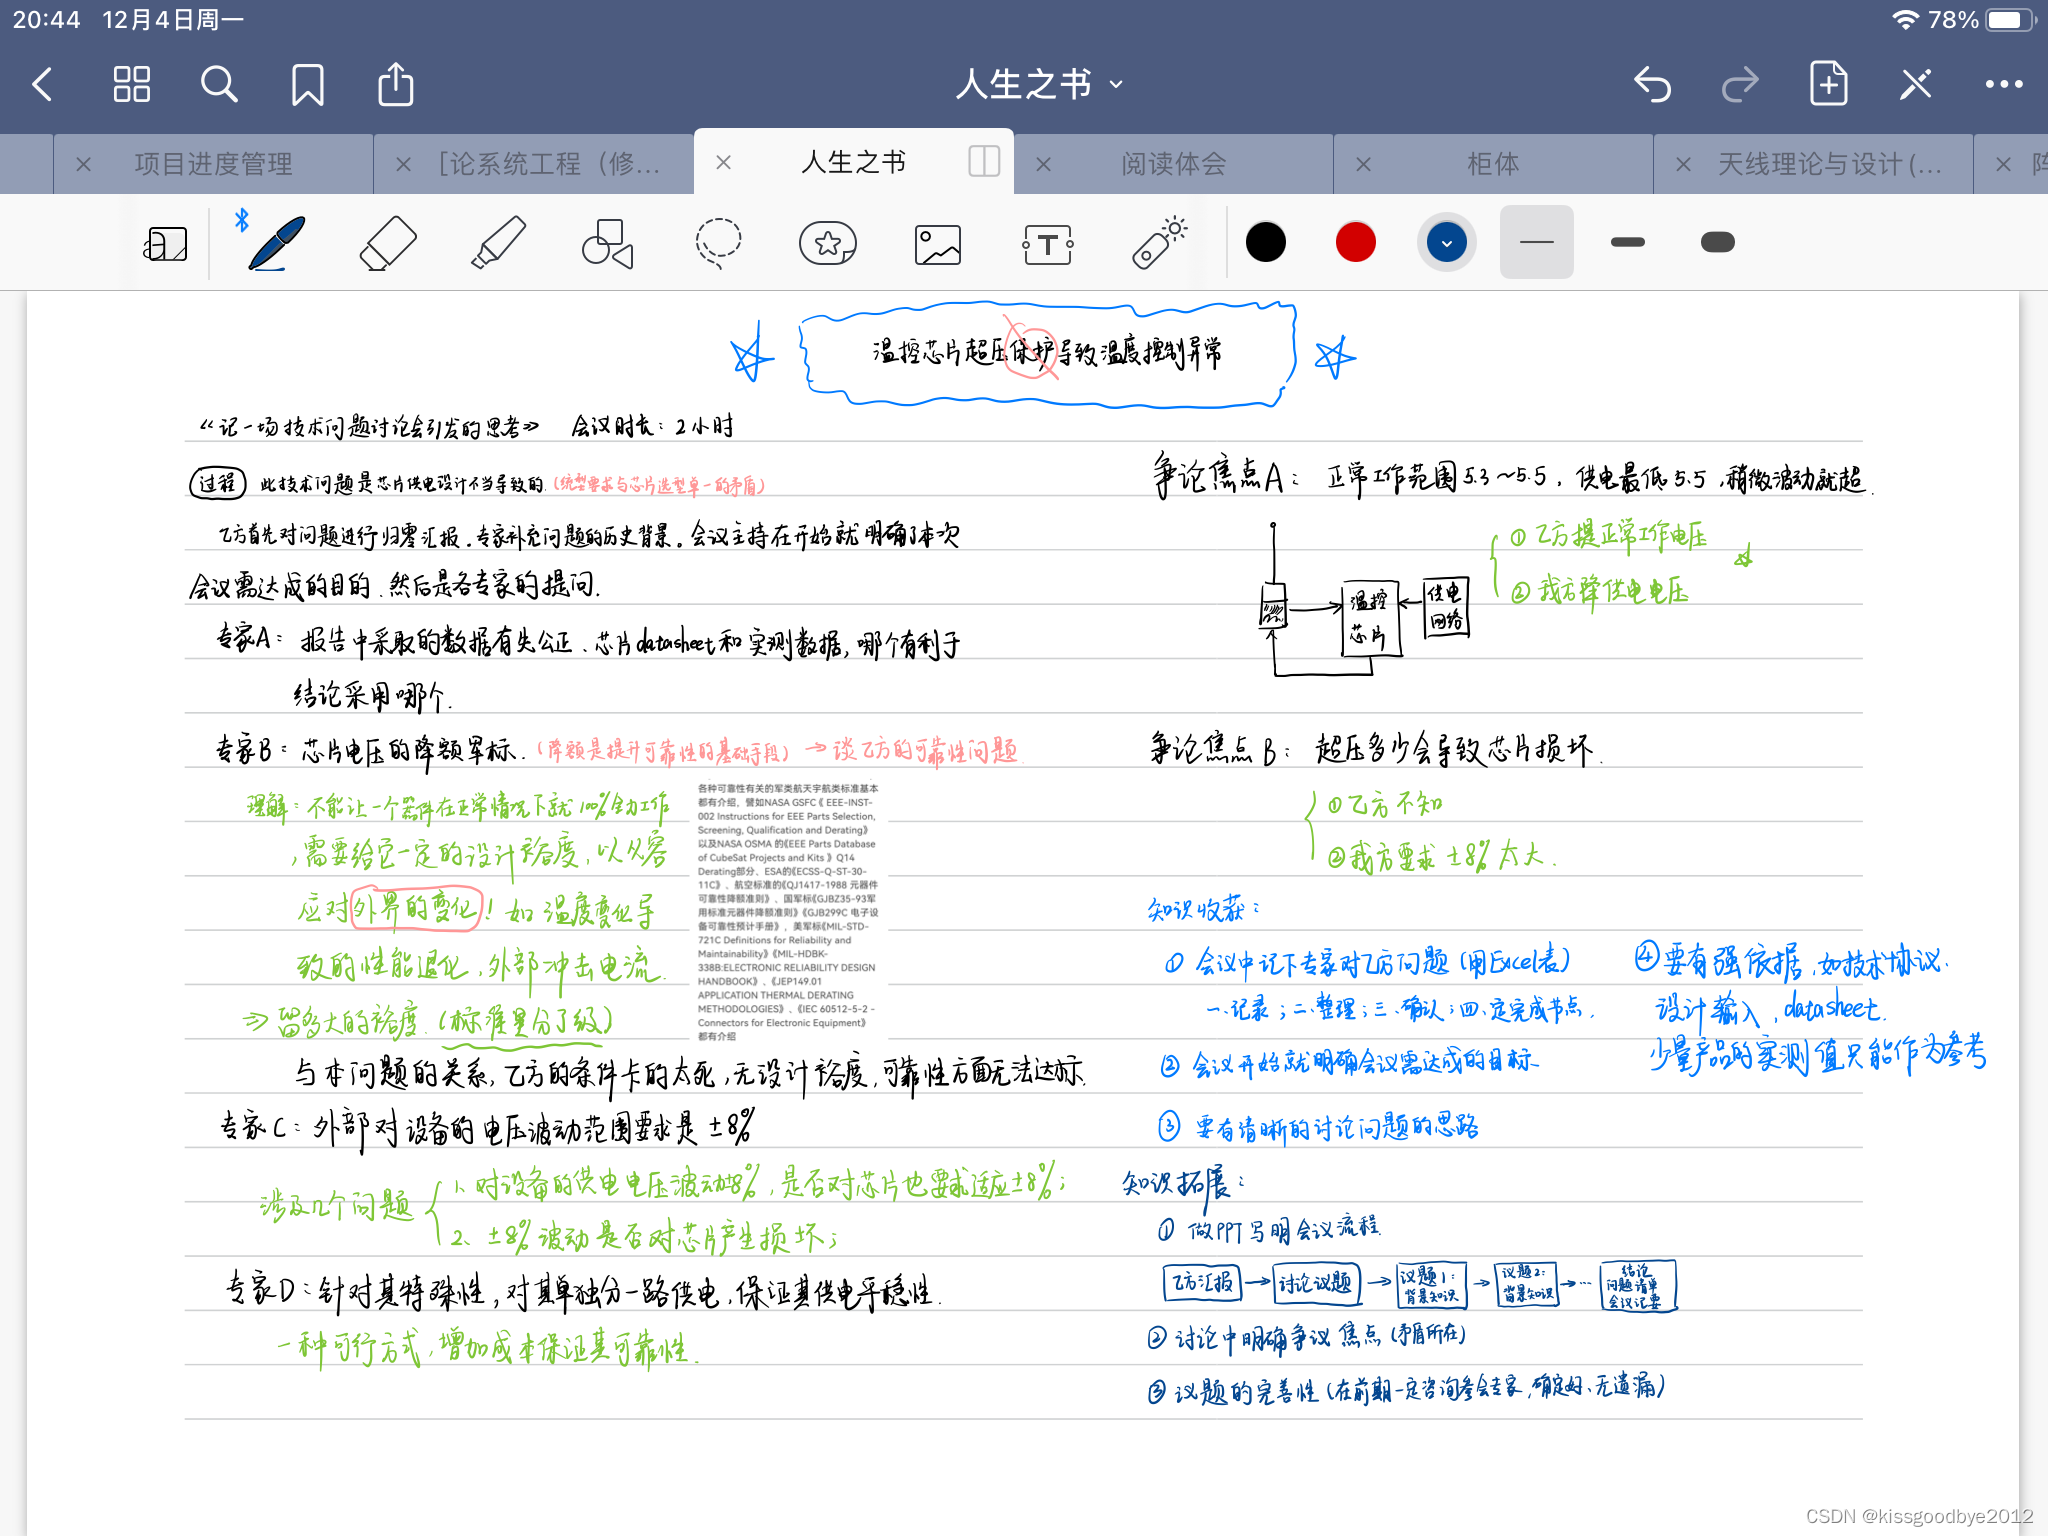 20:44 12月4日周一
78%
人生之书
项目进度管理
[论系统工程（修...
人生之书
阅读体会
柜体
天线理论与设计(...
温控芯片超压保护导致温度控制异常
《记一场技术问题讨论会引发的思考》 会议时长：2小时
过程 此技术问题是芯片供电设计不当导致的.(统型要求与芯片选型单一的矛盾)
乙方首先对问题进行归零汇报.专家补充问题的历史背景。会议主持在开始就明确了本次
会议需达成的目的.然后是各专家的提问.
专家A：报告中采取的数据有失公正、芯片datasheet和实测数据,哪个有利于
结论采用哪个.
专家B：芯片电压的降额军标.(降额是提升可靠性的基础手段)→谈乙方的可靠性问题
理解：不能让一个器件在正常情况下就100%全力工作
,需要给它一定的设计裕度,以从容
应对外界的变化！如温度变化导
致的性能退化,外部冲击电流.
⇒留多大的裕度.(标准里分了级)
各种可靠性有关的军类航天宇航类标准基本
都有介绍，譬如NASA GSFC《 EEE-INST-
002 Instructions for EEE Parts Selection,
Screening, Qualification and Derating》
以及NASA OSMA 的《EEE Parts Database
of CubeSat Projects and Kits 》Q14
Derating部分、ESA的《ECSS-Q-ST-30-
11C》、航空标准的《QJ1417-1988 元器件
可靠性降额准则》、国军标《GJBZ35-93军
用标准元器件降额准则》《GJB299C 电子设
备可靠性预计手册》，美军标《MIL-STD-
721C Definitions for Reliability and
Maintainability》《MIL-HDBK-
338B:ELECTRONIC RELIABILITY DESIGN
HANDBOOK》、《JEP149.01
APPLICATION THERMAL DERATING
METHODOLOGIES》、《IEC 60512-5-2 -
Connectors for Electronic Equipment》
都有介绍
与本问题的关系,乙方的条件卡的太死,无设计裕度,可靠性方面无法达标.
专家C：外部对设备的电压波动范围要求是±8%
涉及几个问题
1、对设备的供电电压波动8%,是否对芯片也要求适应±8%;
2、±8%波动是否对芯片产生损坏;
专家D：针对其特殊性,对其单独分一路供电,保证其供电平稳性.
一种可行方式,增加成本保证其可靠性.
争论焦点A：正常工作范围5.3～5.5,供电最低5.5,稍微波动就超.
①乙方提正常工作电压
②我方降供电电压
温控
芯片
供电
网络
争论焦点B：超压多少会导致芯片损坏.
①乙方不知
②我方要求±8%太大.
知识收获：
①会议中记下专家对乙方问题(用Excel表)
一.记录;二.整理;三.确认;四.定完成节点.
②会议开始就明确会议需达成的目标.
③要有清晰的讨论问题的思路
④要有强依据,如技术协议.
设计输入,datasheet.
少量产品的实测值只能作为参考
知识拓展：
①做PPT写明会议流程.
乙方汇报→讨论议题→议题1：背景知识→议题2：背景知识→…结论 问题清单 会议记要
②讨论中明确争议焦点(矛盾所在)
③议题的完善性(在前期一定咨询参会专家,确定好、无遗漏)
CSDN @kissgoodbye2012